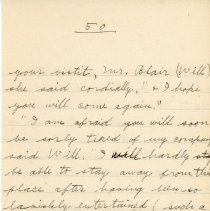 50
your visit, Mr. Blair (Will)
she said cordially, "& I hope
you will come again."
"I am afraid you will soon
be sorely tired of my company
said Will. I will hardly
be able to stay away from this
place after having been so
lavishly entertained (such a